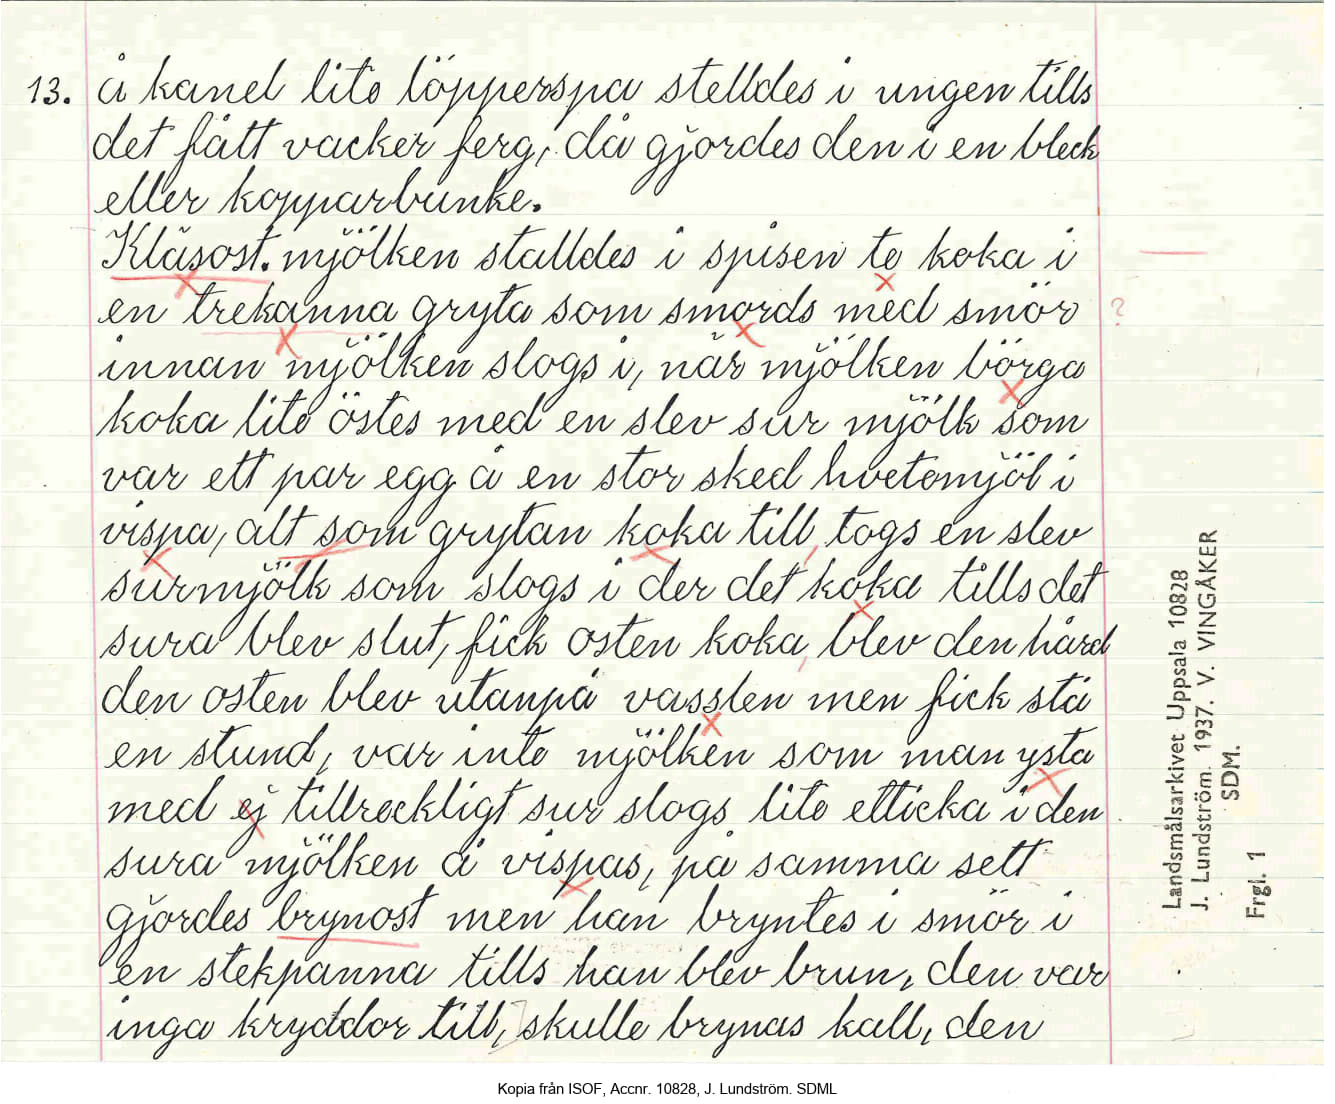 13. å kanel lite löpperspa stelldes i ungen tills
det fått vacker ferg, då gjordes den i en bleck
eller kopparbunke.
Kläsost. mjölken stalldes i spisen te koka i
en trekanna gryta som smords med smör
innan mjölken slogs i, när mjölken börga
koka lite östes med en slev sur mjölk som
var ett par egg å en stor sked hvetemjöl i
vispa, alt som grytan koka till, togs en slev
surmjölk som slogs i der det koka tills det
sura blev slut, fick osten koka, blev den hård
den osten blev utanpå vasslen men fick stå
en stund, var inte mjölken som man ysta
med ej tillreckligt sur slogs lite etticka i den
sura mjölken å vispas, på samma sett
gjordes brynost men han bryntes i smör i
en stekpanna tills han blev brun, den var
inga kryddor till, skulle brynas kall, den
?
Landsmålsarkivet Uppsala 10828
J. Lundström. 1937. V. VINGÅKER
SDM.
Frgl. 1
Kopia från ISOF, Accnr. 10828, J. Lundström. SDML